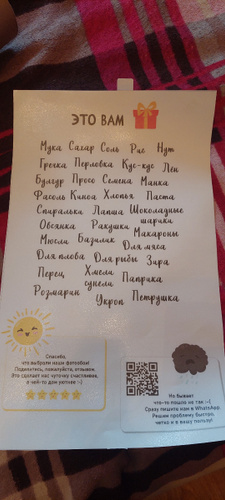 ЭТО ВАМ
Мука Сахар Соль Рис Нут
Гречка Перловка Кус-кус Лён
Булгур Просо Семена Манка
Фасоль Киноа Хлопья Паста
Спиральки Лапша Шоколадные
шарики
Овсянка Ракушка Макароны
Мюсли Базилик Для мяса
Для плова Для рыбы Зира
Перец Хмели
сунели Паприка
Розмарин Укроп Петрушка
Спасибо,
что выбрали наши
Поделитесь, пожалуйста, отзывом.
Это сделает нас чуточку счастливее,
а чей-то дом уютнее :-)
Но бывает
что-то пошло не так :-(
Сразу пишите нам в WhatsApp.
Решим проблему быстро,
четко и в вашу пользу!